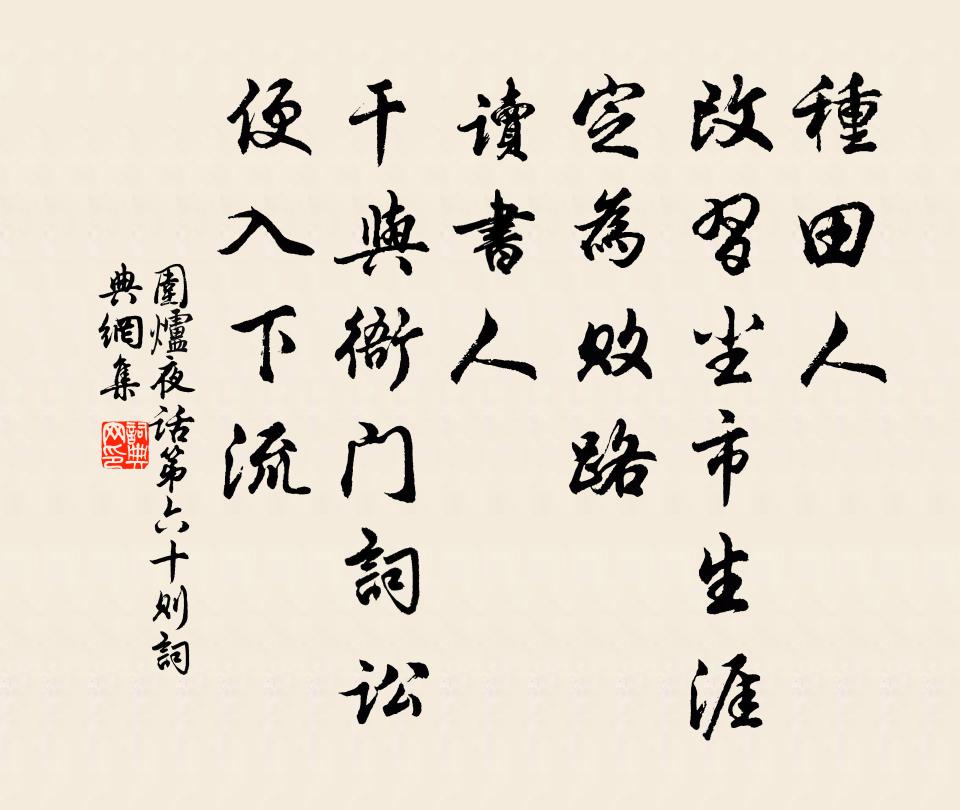 種田人
改習尘市生涯
定為敗路
讀書人
干與衙门詞訟
便入下流
圍爐夜话第六十则詞
典網集
詞典网印